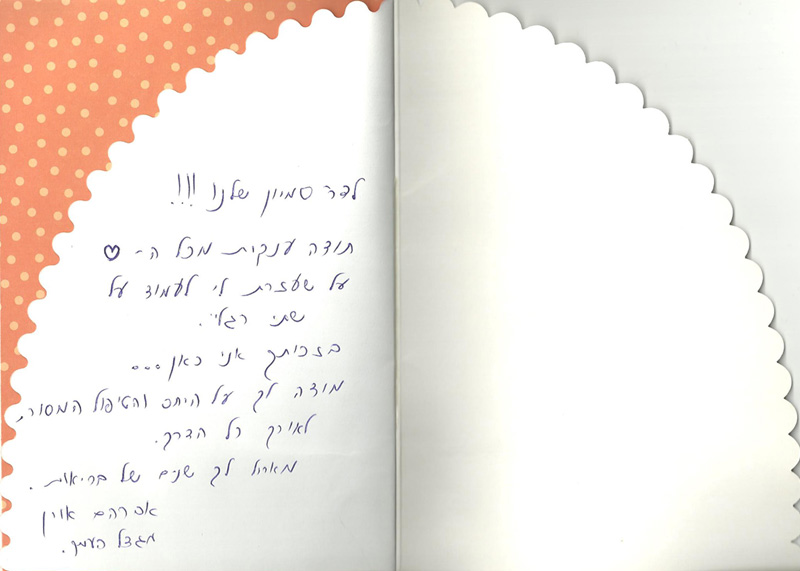 לדר' סמיון שלנו !!!
תודה ענקית מכל ה- ♡
על שעזרת לי לעמוד על
שתי רגלי.
בזכותך אני כאן...
מודה לך על היחס והטיפול המסור,
לאורך כל הדרך.
מאחל לך שנים של בריאות.
אברהם אוין
מגדל העמק.